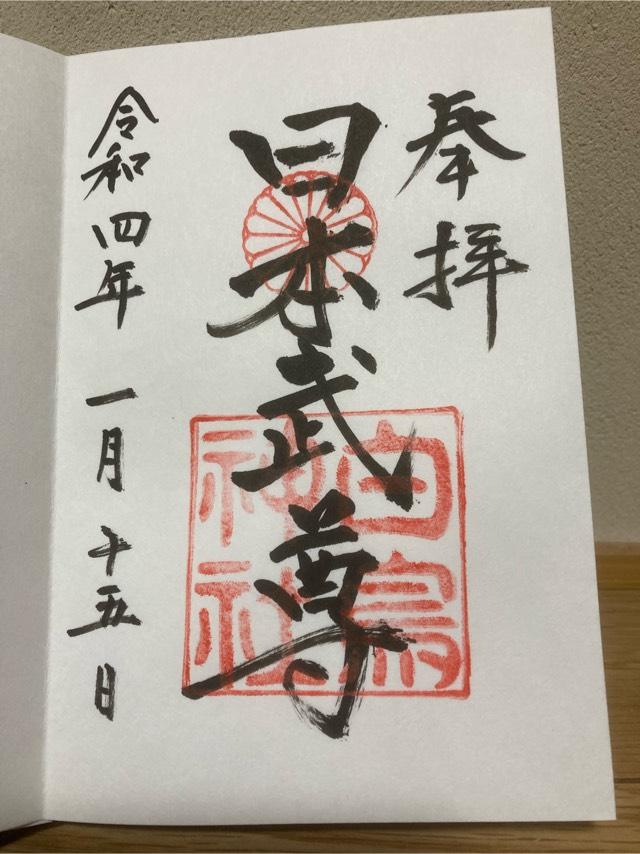 奉拝
日本武尊
白鳥
神社
令和四年 一月 十五日